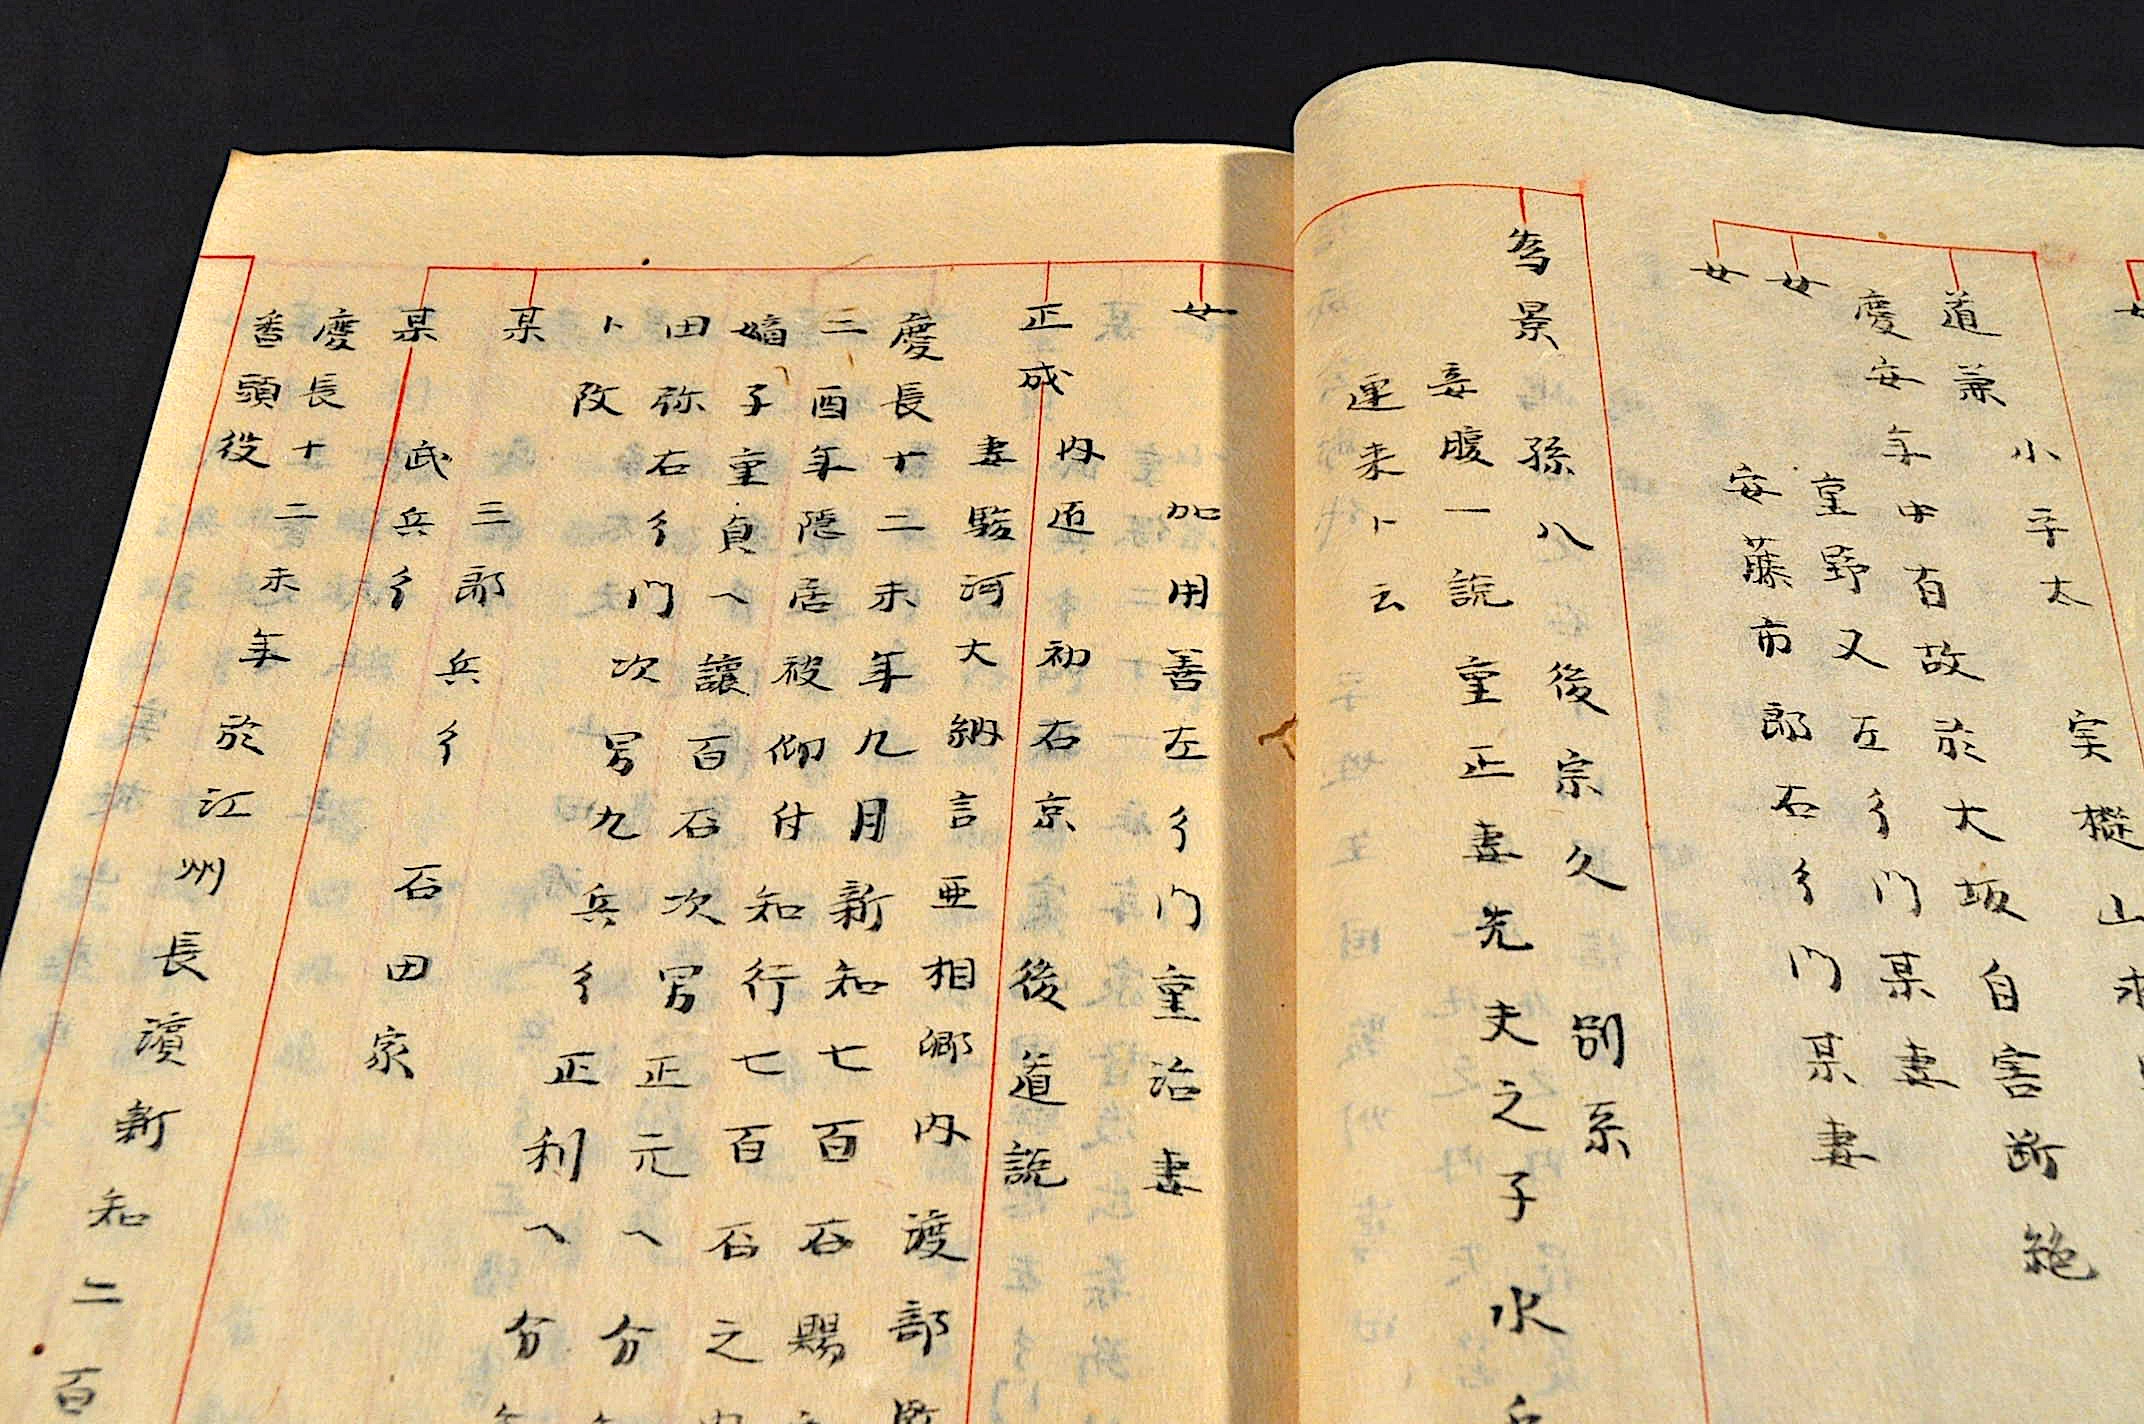 女
小平太 実樅山
道兼
慶安年中百故於大坂自害断絶
女
重野又左彳門某妻
女
安藤市郎右彳門某妻
為景 孫八 後宗久 別系
妾腹一説重正妻先夫之子水
連来ト云
女 加用善左彳門重治妻
正成 内匠 初右京 後道説
妻駿河大納言亜相卿内渡部監
慶長十二未年九月新知七百石賜
三酉年隠居被仰付知行七百石之内
嫡子重貞へ譲百石次男正元へ分
田弥右彳門次男九兵彳正利へ分
ト改
某 三郎兵彳
某 武兵彳 石田家
慶長十二未年於江州長濱新知二百
番頭役